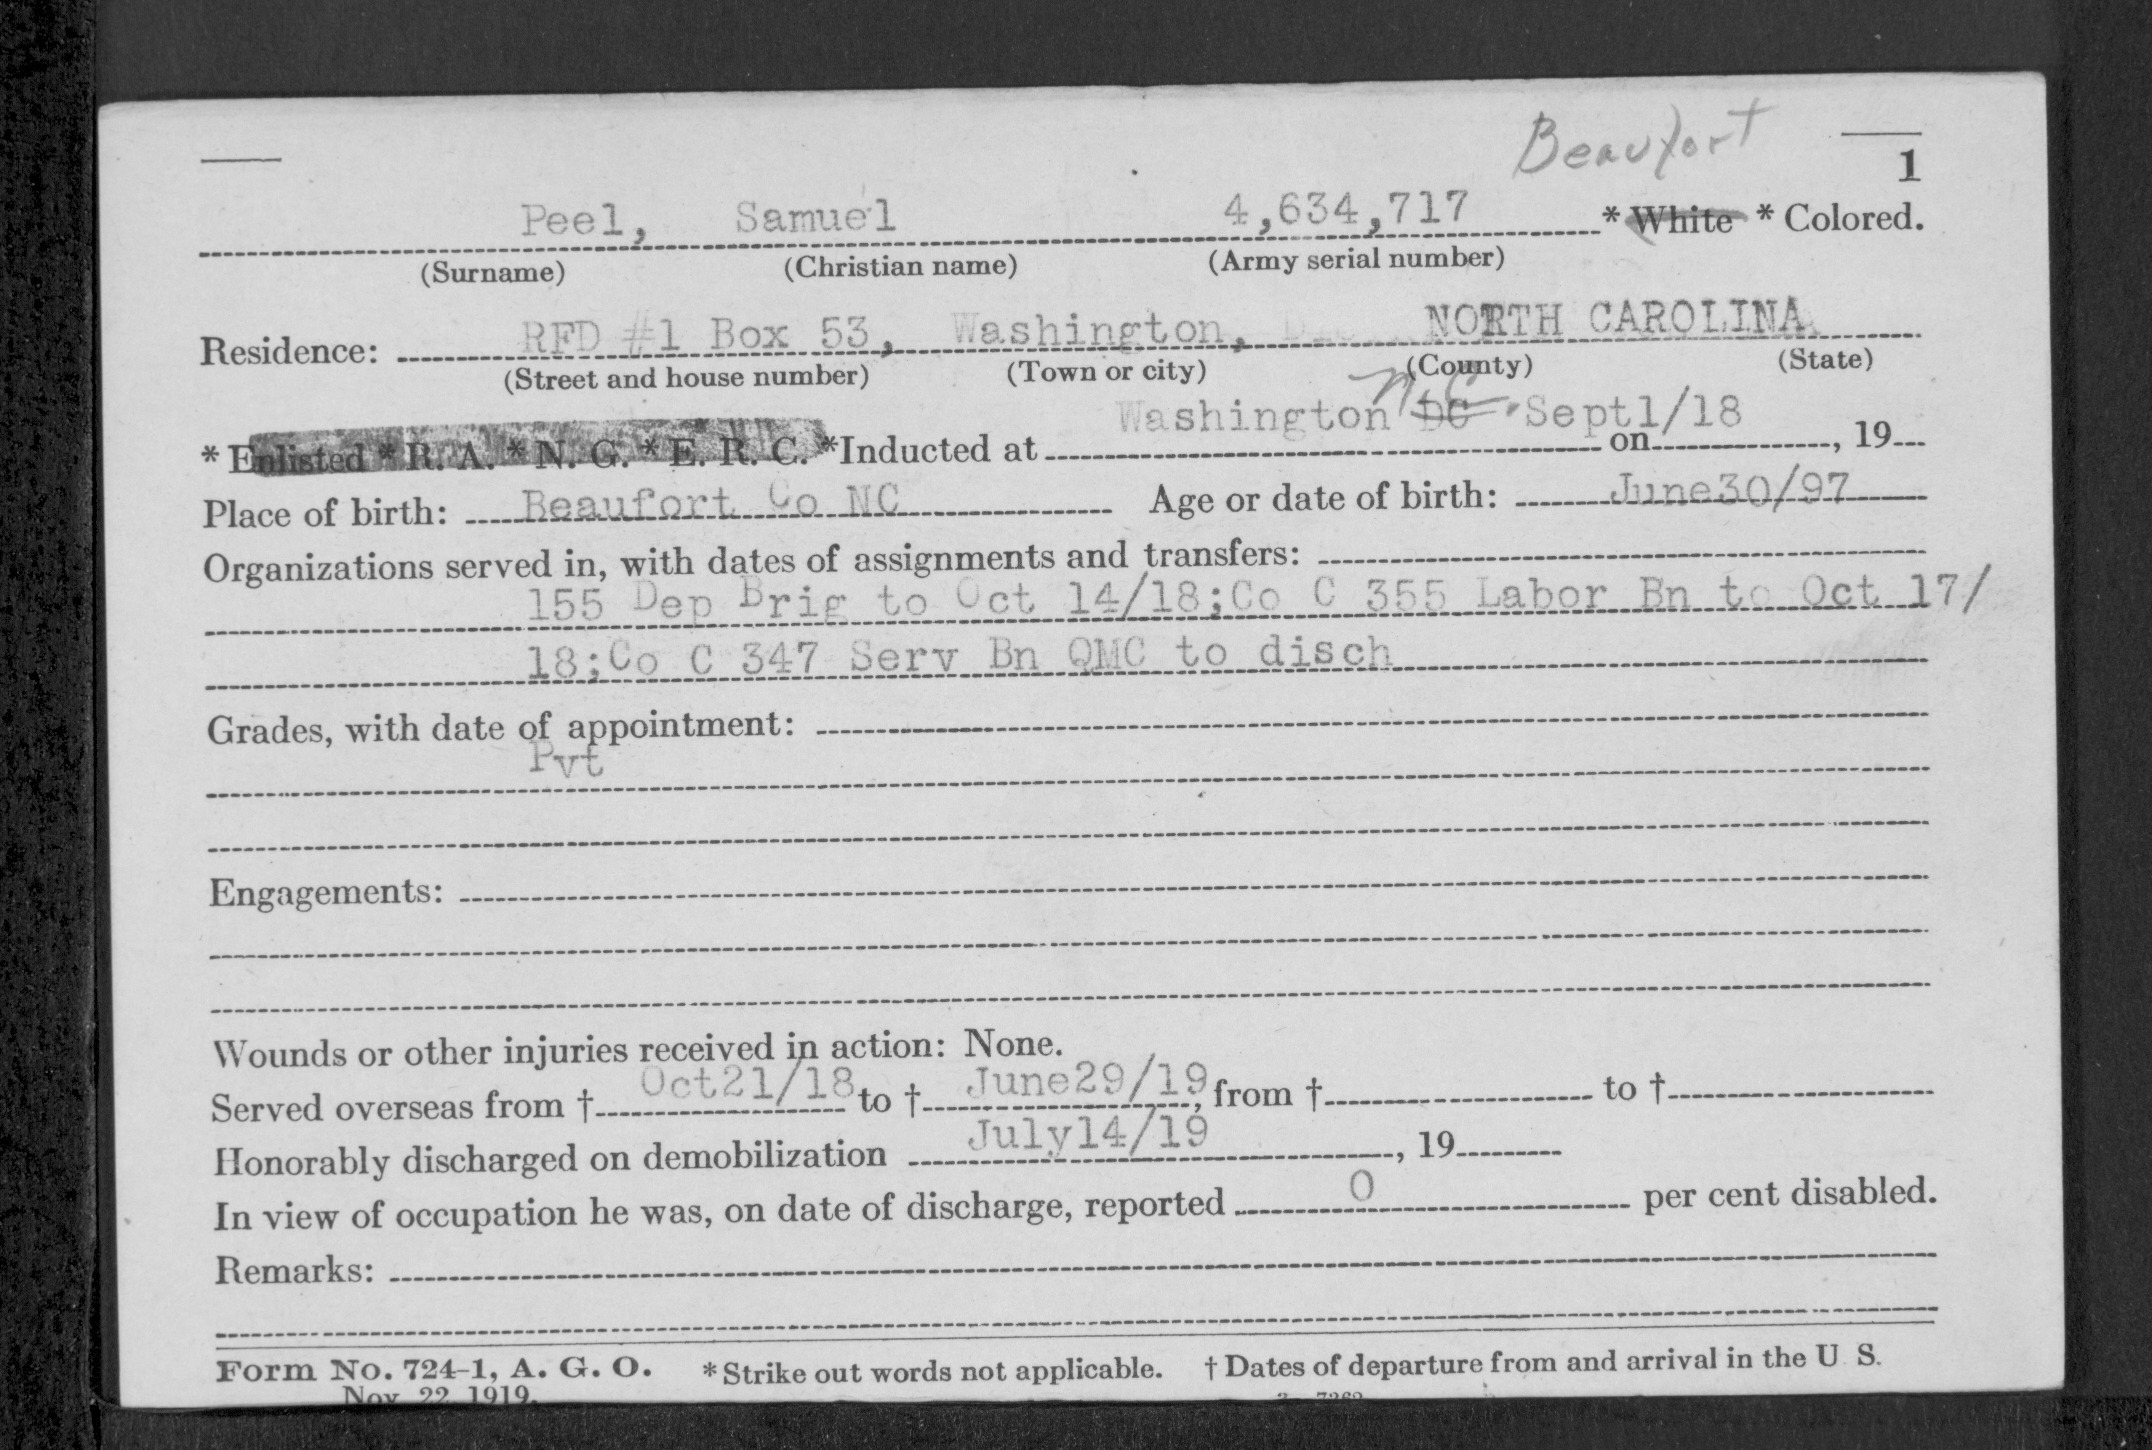 Beaufort
1
Peel, Samuel 4,634,717 * White * Colored.
(Surname) (Christian name) (Army serial number)
Residence: RFD #1 Box 53, Washington, NORTH CAROLINA
(Street and house number) (Town or city) (County) (State)
N.C.
* Enlisted * R. A. * N. G. * E. R. C. *Inducted at Washington DC Sept1/18 on , 19
Place of birth: Beaufort Co NC Age or date of birth: June30/97
Organizations served in, with dates of assignments and transfers:
155 Dep Brig to Oct 14/18;Co C 355 Labor Bn to Oct 17/
18;Co C 347 Serv Bn QMC to disch
Grades, with date of appointment:
Pvt
Engagements:
Wounds or other injuries received in action: None.
Served overseas from † Oct21/18 to † June29/19, from † to †
Honorably discharged on demobilization July14/19 , 19
In view of occupation he was, on date of discharge, reported 0 per cent disabled.
Remarks:
Form No. 724-1, A. G. O. * Strike out words not applicable. † Dates of departure from and arrival in the U S.
Nov. 22, 1919.